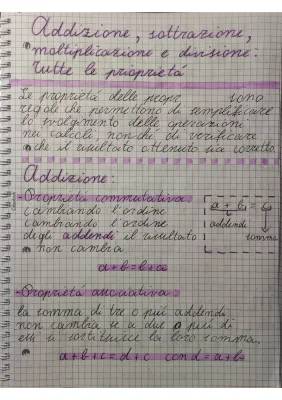 Addizione, sottrazione,
moltiplicazione e divisione:
tutte le proprietà
Le proprietà delle sono
regole che permettono di semplificare
lo svolgimento delle operazioni
nei calcoli, nonché di verificare
che il risultato ottenuto sia corretto.
Addizione:
- Proprietà commutativa
cambiando l'ordine
cambiando l'ordine
degli addendi il risultato
non cambia
a+b=b+a
a + b =
addendi
somma
- Proprietà associativa:
la somma di tre o più addendi
non cambia se a due o più di
essi si sostituisce la loro somma.
a+b+c=d+c con d=a+b